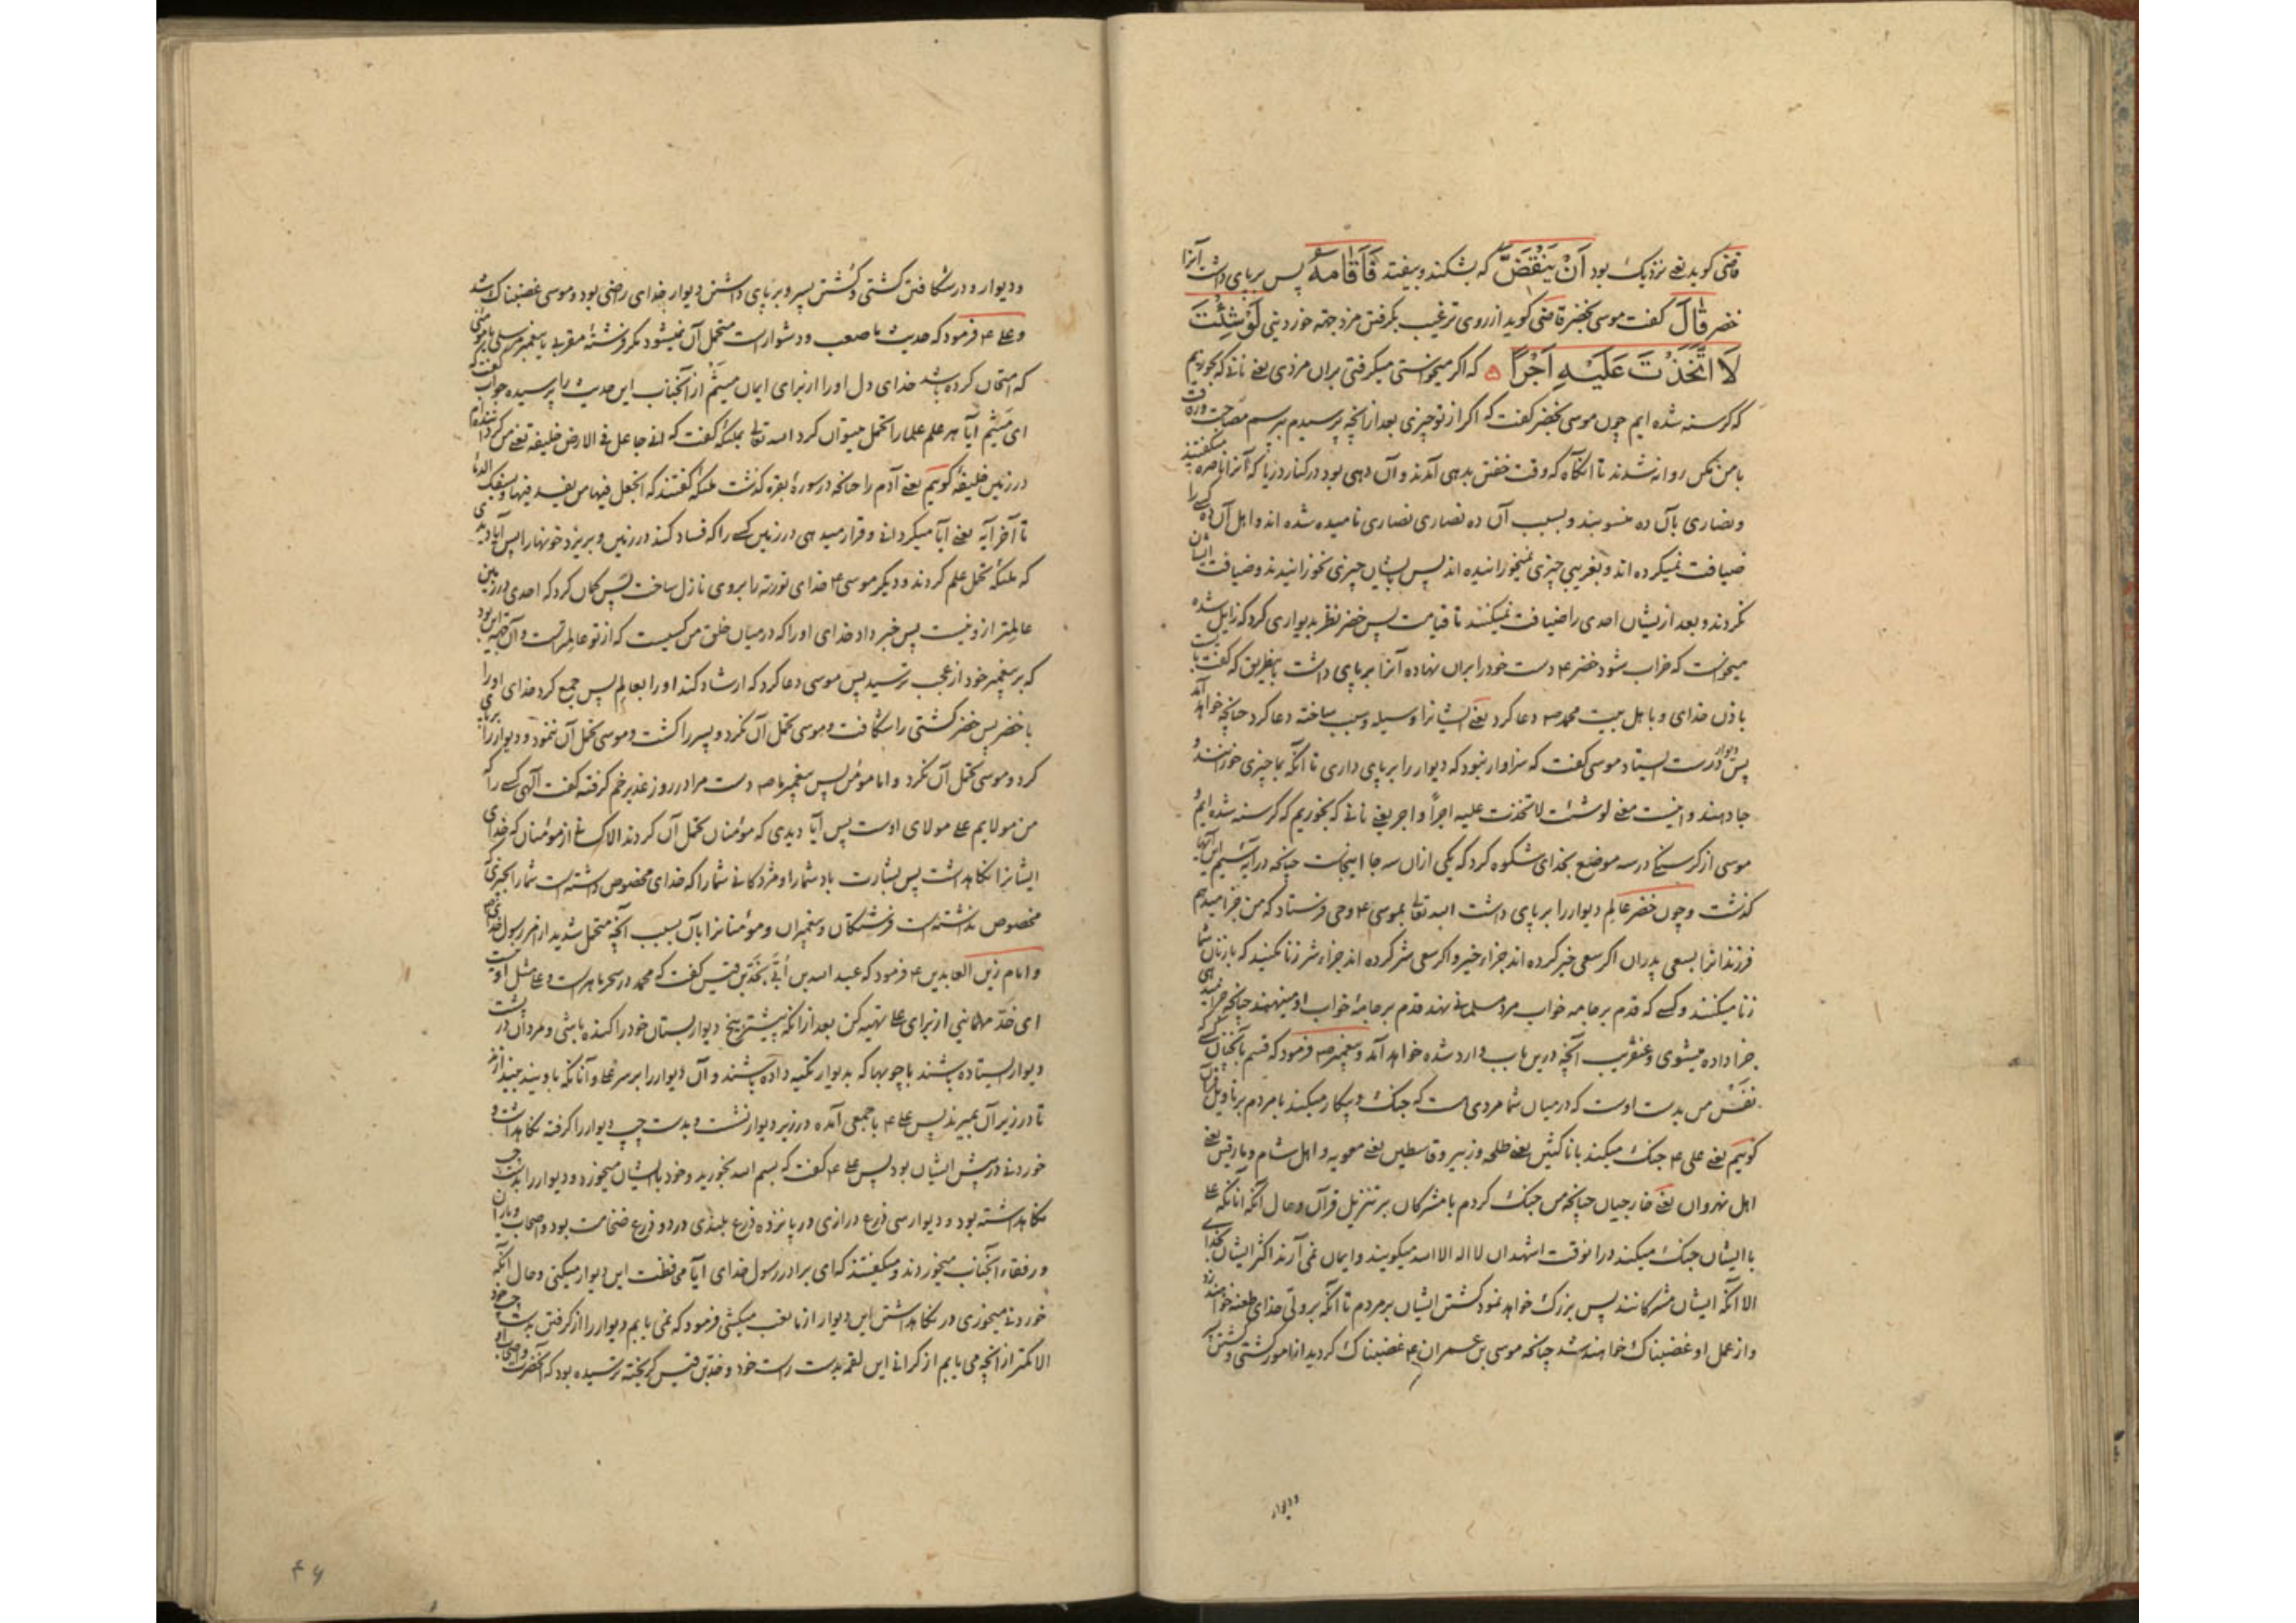 قاضی کوید یعنے نزدیک بود اَنْ یَنْقَضَّ که بشکند و بیفتد فَاَقَامَهُ پس برپای داشت آنرا
خضر قَالَ کفت موسی بخضر قاضی کوید از روی ترغیب بکرفتن مزد جهة خوردنی لَوْ شِئْتَ
لَا تَّخَذْتَ عَلَیْهِ اَجْرًا که اکر میخواستی میکرفتی بران مزدی یعنے نانے که بخوریم
که کرسنه شده ایم چون موسی بخضر کفت که اکر از تو چیزی بعد ازانچه پرسیدم بپرسم مصاحبت
با من مکن روانه شدند تا انکاه که وقت خفتن بدهی آمدند و آن دهی بود در کنار دریا که آنرا ناصره میکفتند
و نصاری بآن ده منسوبند و بسبب آن ده نصاری نصاری نامیده شده اند و اهل آن ده کسے را
ضیافت نمیکرده اند و بغریبی چیزی نمیخورانیده اند پس بایشان چیزی نخورانیدند و ضیافت ایشان
نکردند و بعد ازیشان احدی را ضیافت نمیکنند تا قیامت پس خضر نظر بدیواری کرد که زایل شده
میخواست که خراب شود خضر ع دست خود را بران نهاده آنرا برپای داشت باینطریق که کفت
باذن خدای و باهل بیت محمد ص دعا کرد یعنے ایشانرا وسیله و سبب ساخته دعا کرد چنانچه خواهد آمد
پس دیوار درست ایستاد موسی کفت که سزاوار نبود که دیوار را برپای داری تا آنکه بما چیزی خورانند و
جا دهند و اینست معنے لوشئت لاتخذت علیه اجرًا و اجر یعنے نانے که بخوریم که کرسنه شده ایم و
موسی از کرسنکے در سه موضع بخدای شکوه کرد که یکی ازان سه جا اینجاست چنانچه در آیه
کذشت و چون خضر عالم دیوار را برپای داشت الله تعالے بموسی ع وحی فرستاد که من جزا میدهم
فرزندانرا بسعی پدران اکر سعی خیر کرده اند جزاء خیر و اکر سعی شر کرده اند جزاء شر زنا نکنید که با زنان شما
زنا میکنند و کسے که قدم بر جامه خواب مرد مسلمانے نهد قدم بر جامهٔ خواب او مینهند چنانچه جزا میدهی
جزا داده میشوی و عنقریب آنچه درین باب وارد شده خواهد آمد و پیغمبر ص فرمود که قسم بآنچنان کسے که
نَفْسِ من بدست اوست که در میان شما مردی است که جنک و پیکار میکند با مردم بر تاویل قرآن
کوییم یعنے علی ع جنک میکند با ناکثین یعنے طلحه و زبیر و قاسطین یعنے معویه و اهل شام و مارقین یعنے
اهل نهروان یعنے خارجیان چنانچه من جنک کردم با مشرکان بر تنزیل قرآن و حال آنکه آنانکه علے
با ایشان جنک میکند درانوقت اشهد ان لا اله الا الله میکویند و ایمان نمی آرند اکثر ایشان بخدای
الا آنکه ایشان مشرکانند پس بزرک خواهد نمود کشتن ایشان بر مردم تا آنکه بر ولیّ خدای طعنه خواهند زد
و از عمل او غضبناک خواهند شد چنانچه موسی بن عمران ع غضبناک کردید از امور کشتی و کشتن
ودیوار
و دیوار و در شکافتن کشتی و کُشتن پسر و برپای داشتن دیوار خدای راضی بود و موسی غضبناک شد
و علے ع فرمود که حدیث ما صعب و دشوار است متحمل آن نمیشود مکر فرشتهٔ مقرب یا پیغمبر مرسلی یا مؤمنی
که امتحان کرده باشد خدای دل او را از برای ایمان میثم از آنجناب این حدیث را پرسیده جواب کفت که
ای میثم آیا هر علم علما را تحمل میتوان کرد الله تعالے بملئکه کفت که انے جاعل فے الارض خلیفة یعنے من
در زمین خلیفهٔ کوییم یعنے آدم را چنانچه در سورهٔ بقره کذشت ملئکه کفتند که اتجعل فیها من یفسد فیها و یسفک الدماء
تا آخر آیه یعنے آیا میکردانے و قرار میدهی در زمین کسے را که فساد کند در زمین و بریزد خونهارا پس آیا دیدی
که ملئکه تحمل علم کردند و دیکر موسی ع خدای توریة را بروی نازل ساخت پس کمان کرد که احدی در زمین
عالمتر ازو نیست پس خبر داد خدای او را که در میان خلق من کسیست که از تو عالمتر است و آن
که بر پیغمبر خود از عجب ترسید پس موسی دعا کرد که ارشاد کند او را بعالم پس جمع کرد خدای او را
با خضر پس خضر کشتی را شکافت و موسی تحمل آن نکرد و پسر را کشت و موسی تحمل آن ننمود و دیوار را برپای
کرد و موسی تحمل آن نکرد و اما مؤمن پس پیغمبر ما ص دست مرا در روز غدیر خم کرفته کفت الهی کسے را که
من مولایم علے مولای اوست پس آیا دیدی که مؤمنان تحمل آن کردند الا کسانے از مؤمنان که خدای
ایشانرا نکاهداشت پس بشارت باد شما را و مژدکانے شما را که خدای مخصوص داشته است شما را بچیزی که
مخصوص نداشته است فرشتکان و پیغمبران و مؤمنانرا بآن بسبب آنچه متحمل شدید از امر رسول خدای ص
و امام زین العابدین ع فرمود که عبد الله بن اُبَیّ بجَدّ بن قیس کفت که محمد در سحر ماهر است و علے مثل او نیست
ای جَدّ مهمانیی از برای علے تهیه کن بعد ازانکه پیشتر بیخ دیوار بستان خود را کنده باشی و مردان در پشت
دیوار ایستاده باشند با چوبها که بدیوار تکیه داده باشند و آن دیوار را بر سر علے و آنانکه با ویند بیندازند
تا در زیر آن بمیرند پس علے ع با جمعی آمده در زیر دیوار نشست و بدست چپ دیوار را کرفته نکاهداشت و
خوردنے در پیش ایشان بود پس علے ع کفت که بسم الله بخورید و خود با ایشان میخورد و دیوار را بدست چپ
نکاهداشته بود و دیوار سی ذرع درازی در پانزده ذرع بلندی در دو ذرع ضخامت بود و اصحاب و یاران
و رفقاء آنجناب میخوردند و میکفتند که ای برادر رسول خدای آیا محافظت این دیوار میکنی و حال آنکه
خوردنے میخوری در نکاهداشتن این دیوار از ما تعب میکشی فرمود که نمی یابم دیوار را از کرفتن بدست چپ خود
الا کمتر ازانچه می یابم از کرانے این لقمه بدست راست خود و جَدّ بن قیس کریخته ترسیده بود که آنحضرت و اصحاب او
۴۶